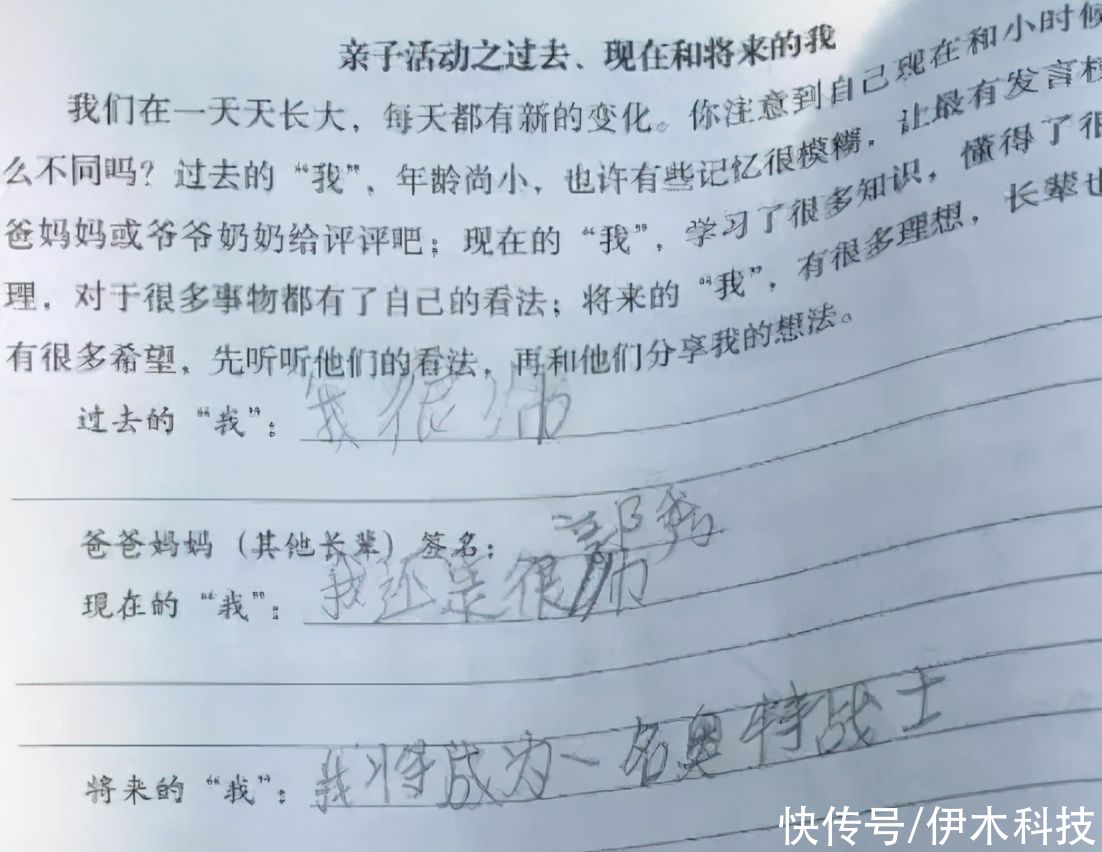 亲子活动之过去、现在和将来的我
我们在一天天长大，每天都有新的变化。你注意到自己现在和小时候
么不同吗？过去的“我”，年龄尚小，也许有些记忆很模糊，让最有发言权
爸妈妈或爷爷奶奶给评评吧；现在的“我”，学习了很多知识，懂得了很
理，对于很多事物都有了自己的看法；将来的“我”，有很多理想，长辈也
有很多希望，先听听他们的看法，再和他们分享我的想法。
过去的“我”：我很帅
爸爸妈妈（其他长辈）签名：郭秀
现在的“我”：我还是很帅
将来的“我”：我将成为一名奥特战士
快传号/伊木科技